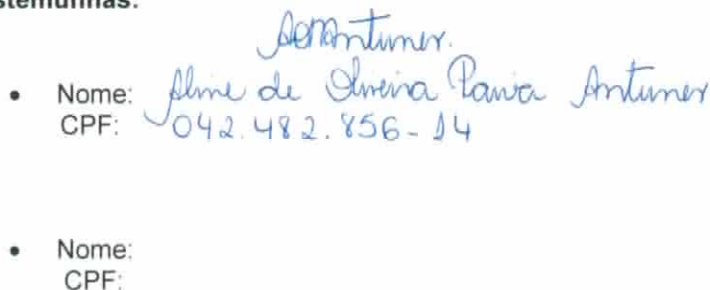 stemunhas:
AOPAntunes.
• Nome: Aline de Oliveira Paiva Antunes
CPF: 042.482.856-14
• Nome:
CPF: